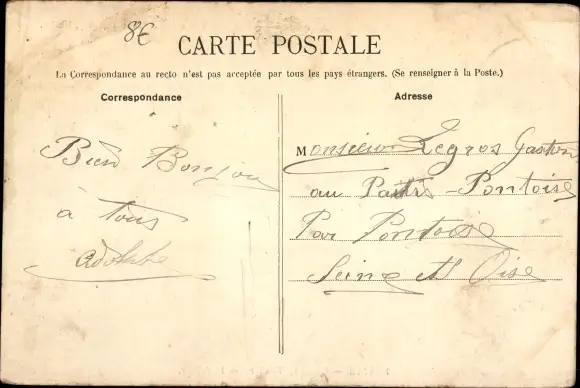 8€
CARTE POSTALE
La Correspondance au recto n'est pas acceptée par tous les pays étrangers. (Se renseigner à la Poste.)
Correspondance
Adresse
Bien Bonjour
à Tous
Adolphe
Monsieur Legros Gaston
au Pontoise
Par Pontoise
Seine et Oise